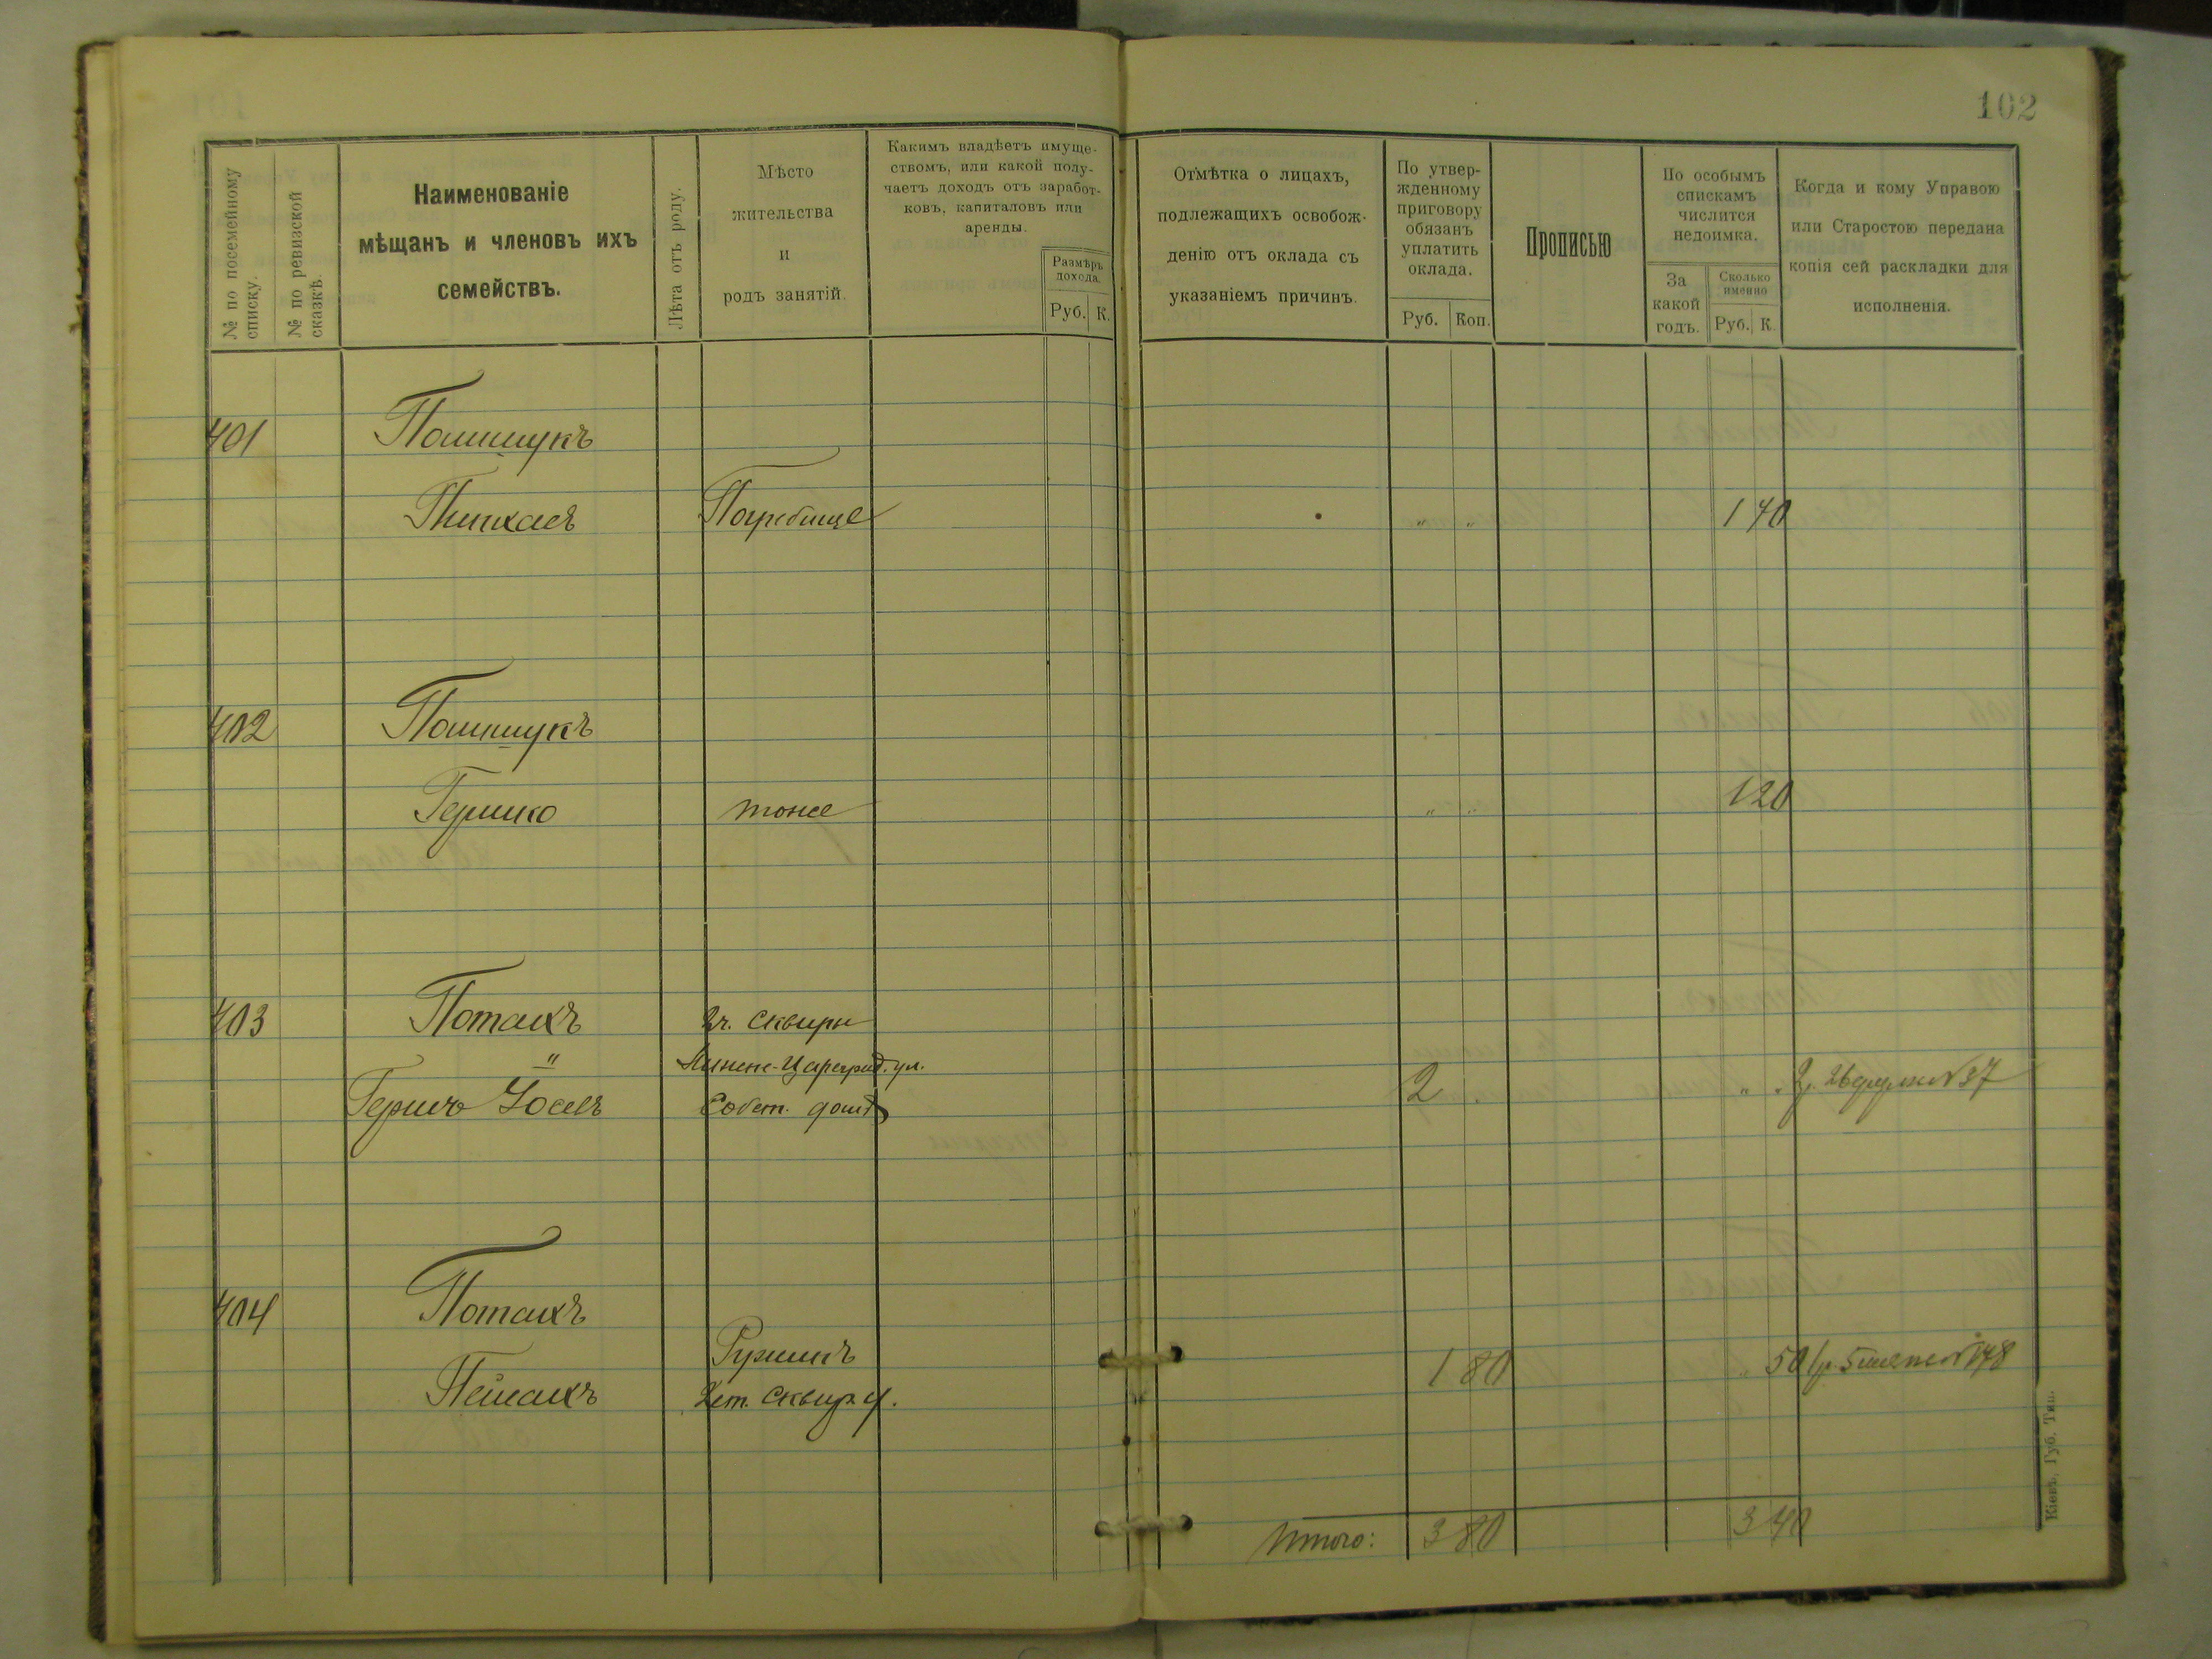 102
№ по посемейному списку.
№ по ревизской сказкѣ.
Наименованіе
мѣщанъ и членовъ ихъ
семействъ.
Лѣта отъ роду.
Мѣсто
жительства
и
родъ занятій.
Какимъ владѣетъ имуще-
ствомъ, или какой полу-
чаетъ доходъ отъ заработ-
ковъ, капиталовъ или
аренды.
Размѣръ
дохода.
Руб. К.
Отмѣтка о лицахъ,
подлежащихъ освобож-
денію отъ оклада съ
указаніемъ причинъ.
По утвер-
жденному
приговору
обязанъ
уплатить
оклада.
Руб. Коп.
Прописью
По особымъ
спискамъ
числится
недоимка.
За
какой
годъ.
Сколько
именно
Руб. К.
Когда и кому Управою
или Старостою передана
копія сей раскладки для
исполненія.
401 Полищукъ
Пинхасъ Погребище " " 1 40
402 Полищукъ
Гершко тоже " " 1 20
403 Потахъ гъ. Сквиры
" -Цареград. ул.
Гершъ Иосъ Собст. домъ 2 " " №37
404 Потахъ
Ружинъ
Пейсахъ Сквир. у. 1 80 " 50 №148
Итого: 3 80 3 40
Кіевъ, Губ. Тип.